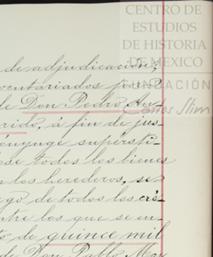 CENTRO DE
ESTUDIOS
DE HISTORIA
DE MEXICO
FUNDACIÓN
Carlos Slim
de adjudicación,
ventariados por D
de Don Pedro
rido, á fin de jus
cónyuge supersti
se todos los bienes
los herederos, se
go de todos los
ntre los que se en
to, de quince mil
de Don Pablo